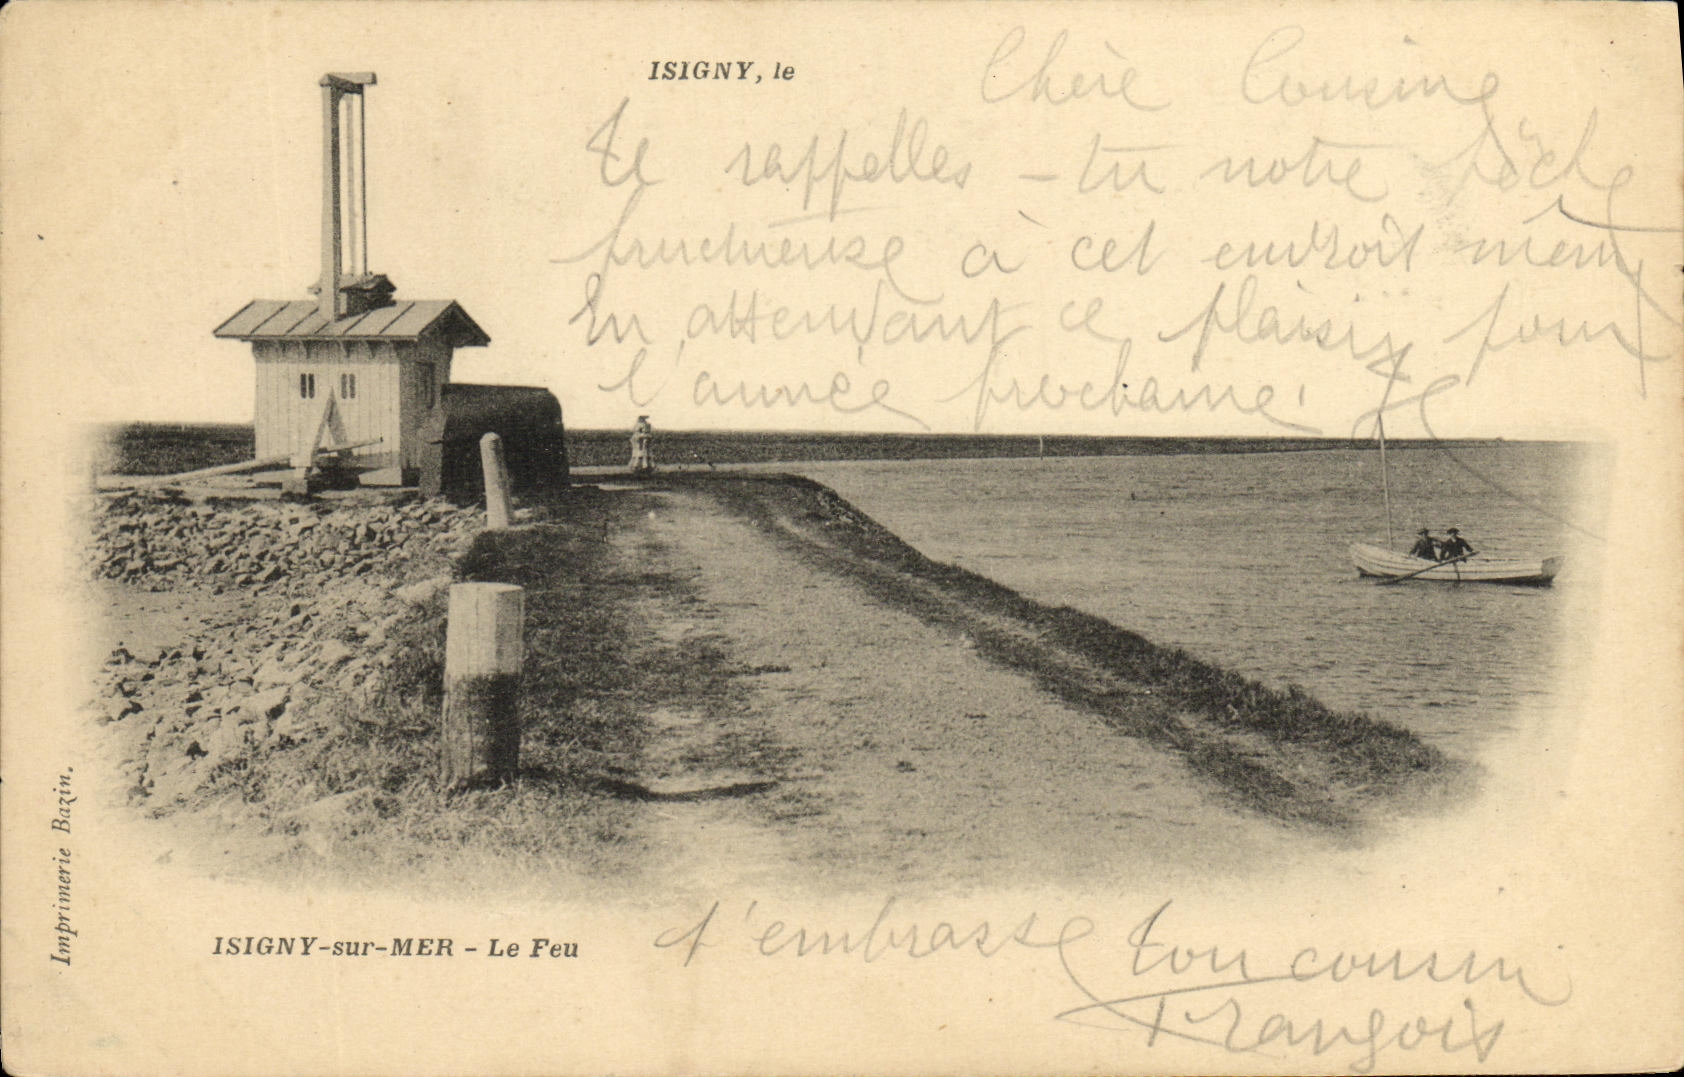 ISIGNY, le
Chère Cousine
Te rappelles-tu notre pêche
fructueuse à cet endroit même
En attendant ce plaisir pour
l'année prochaine. Je
t'embrasse ton cousin
François
ISIGNY-sur-MER - Le Feu
Imprimerie Bazin.